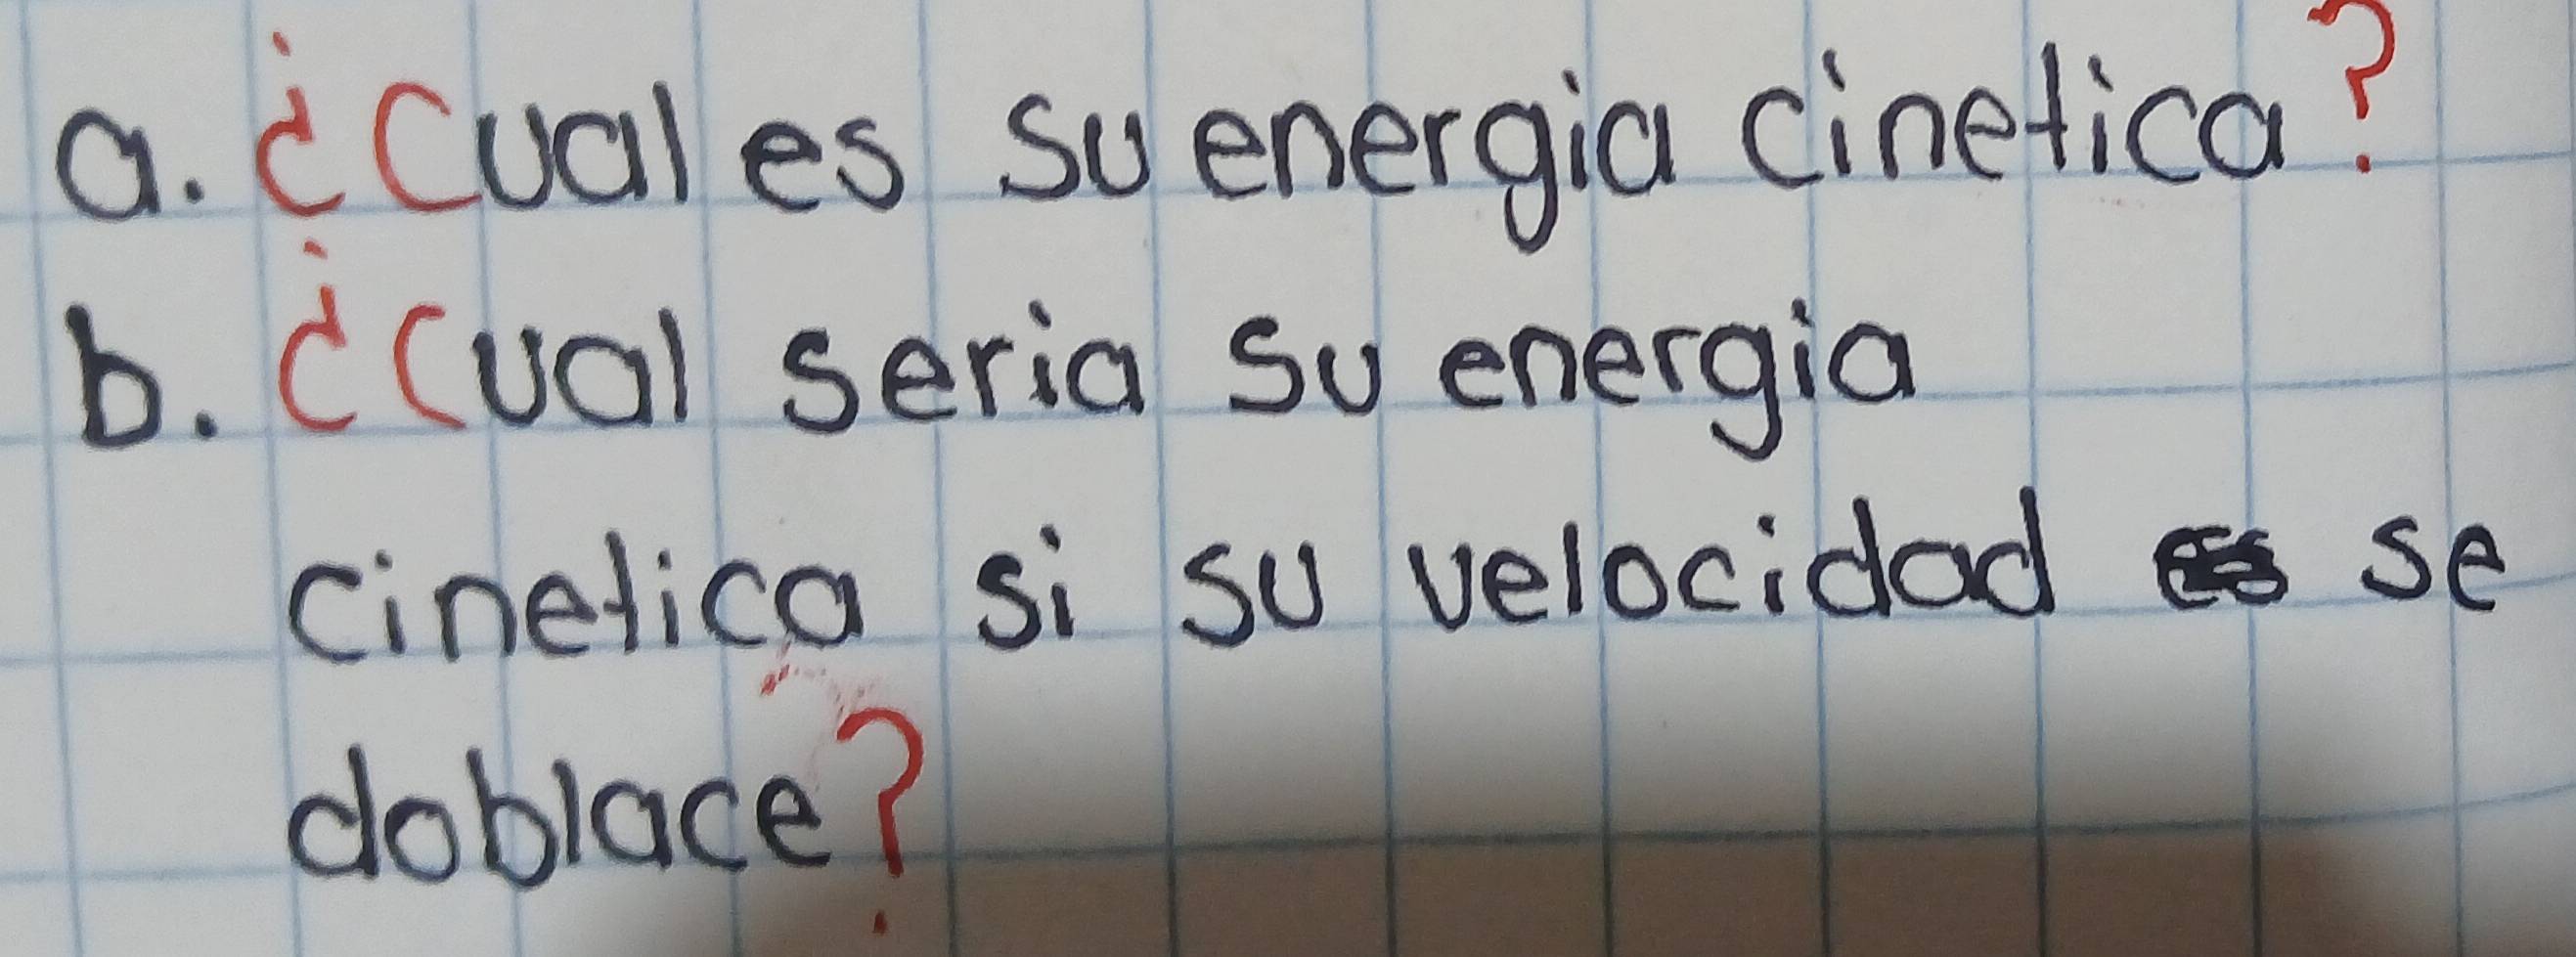 a. ¿Cual es su energia cinetica?
b. ¿Cual seria su energia
cinetica si su velocidad se
doblace?